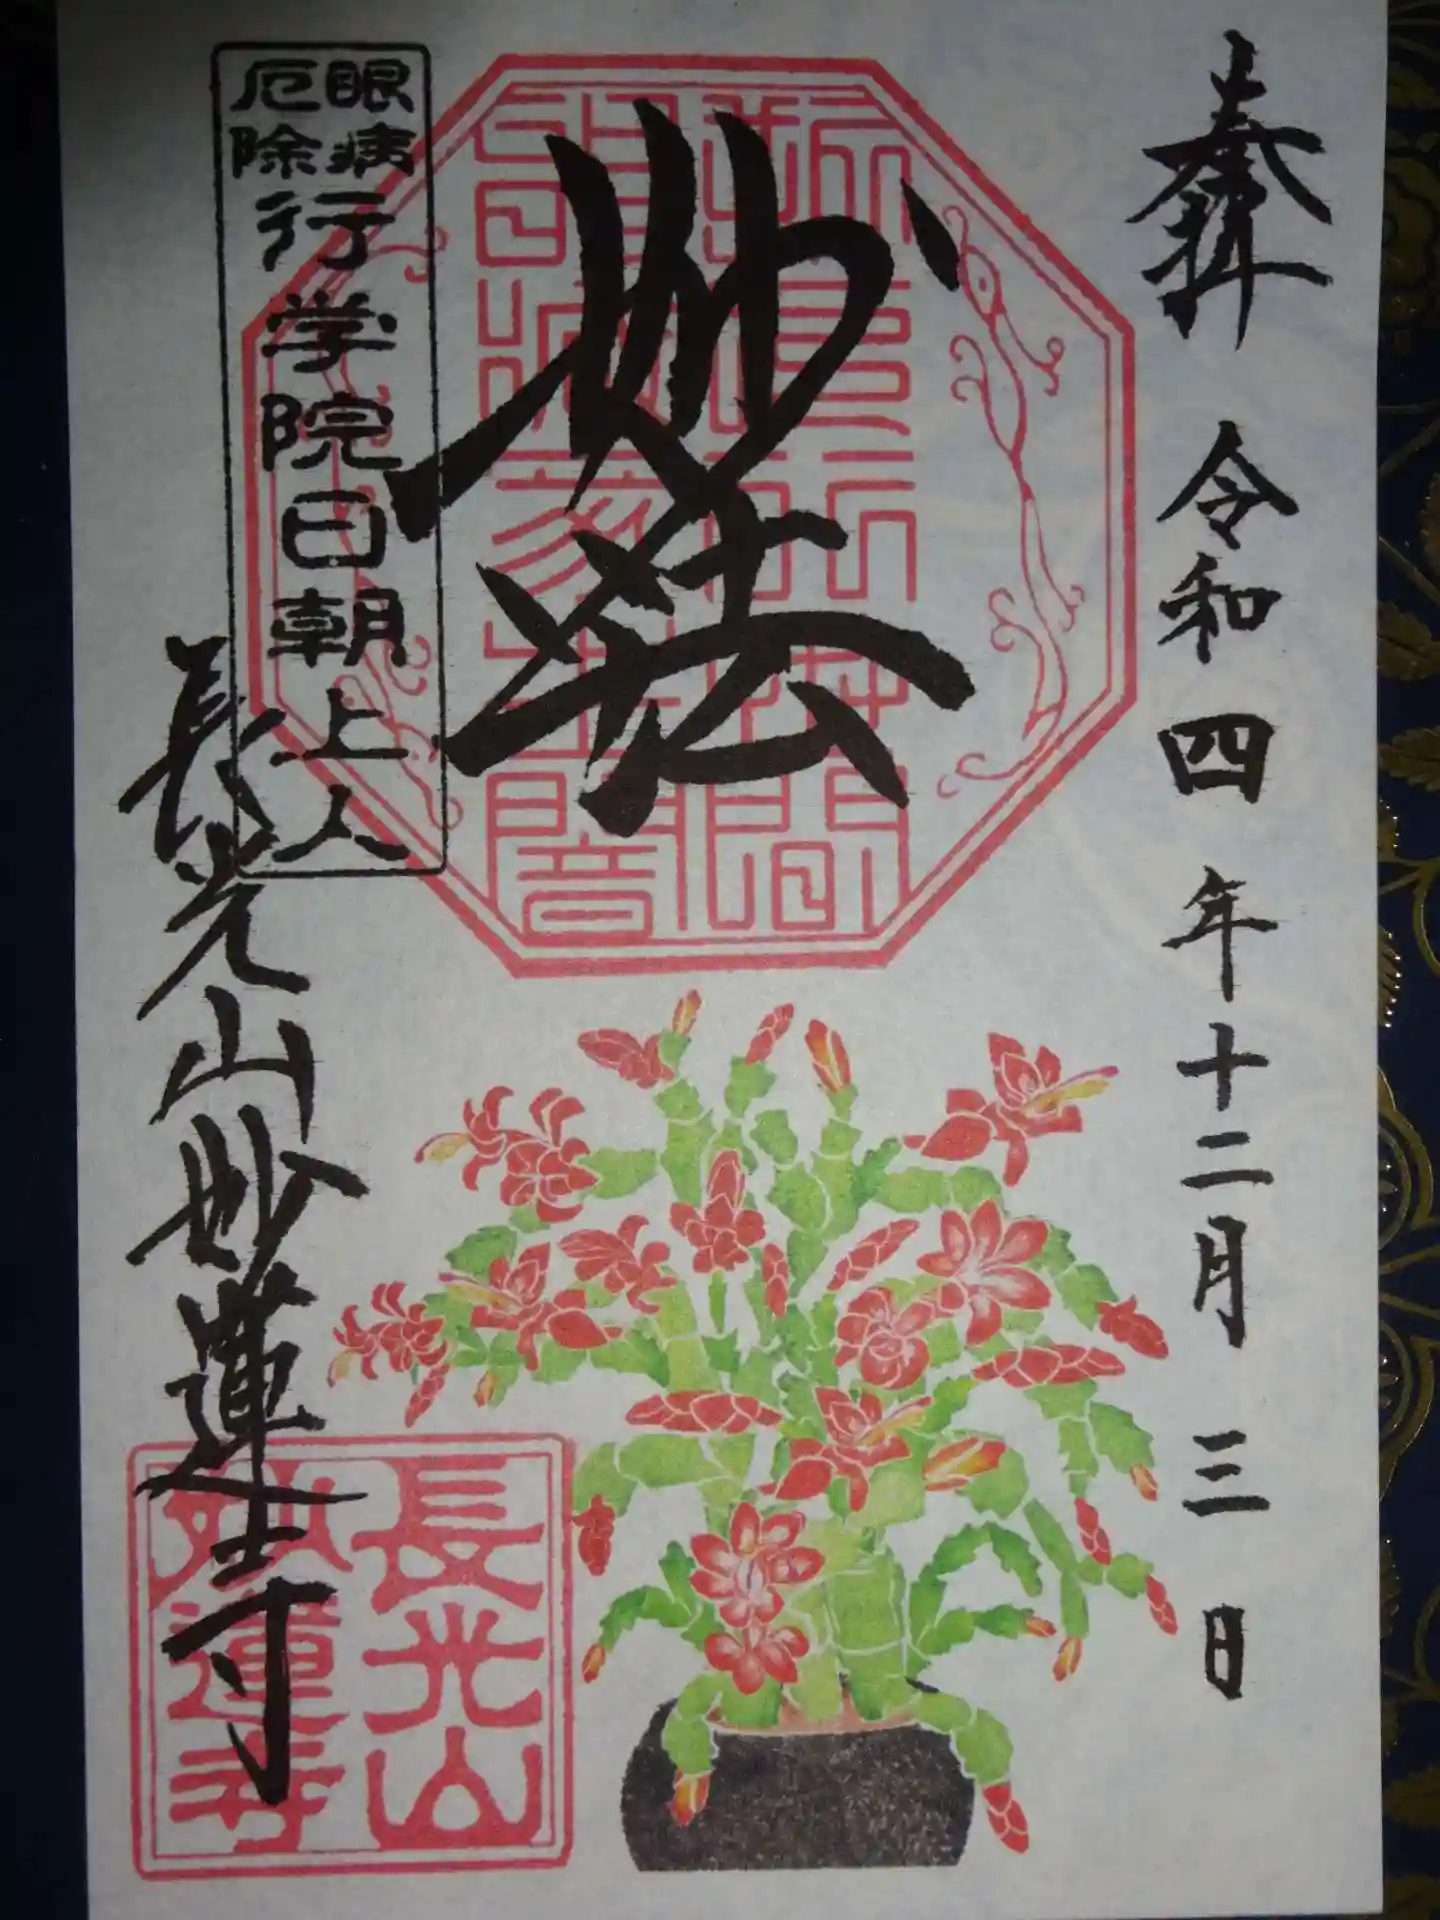 奉拝
令和四年十二月三日
妙法
眼病
厄除
行学院日朝上人
長光山妙蓮寺
長光山
妙蓮寺